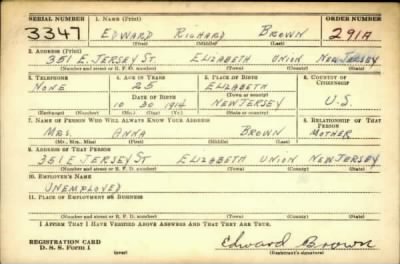 SERIAL NUMBER 1. NAME (Print) ORDER NUMBER
3347 EDWARD RICHARD BROWN 291A
(First) (Middle) (Last)
2. ADDRESS (Print)
351 E. JERSEY ST ELIZABETH UNION NEW JERSEY
(Number and street or R. F. D. number) (Town) (County) (State)
3. TELEPHONE 4. AGE IN YEARS 5. PLACE OF BIRTH 6. COUNTRY OF CITIZENSHIP
NONE 25 ELIZABETH
DATE OF BIRTH (Town or county)
10 30 1914 NEW JERSEY U.S.
(Exchange) (Number) (Mo.) (Day) (Yr.) (State or country)
7. NAME OF PERSON WHO WILL ALWAYS KNOW YOUR ADDRESS 8. RELATIONSHIP OF THAT PERSON
MRS. ANNA BROWN MOTHER
(Mr., Mrs., Miss) (First) (Middle) (Last)
9. ADDRESS OF THAT PERSON
351 E JERSEY ST ELIZABETH UNION NEW JERSEY
(Number and street or R. F. D. number) (Town) (County) (State)
10. EMPLOYER'S NAME
UNEMPLOYED
11. PLACE OF EMPLOYMENT OR BUSINESS
(Number and street or R. F. D. number) (Town) (County) (State)
I AFFIRM THAT I HAVE VERIFIED ABOVE ANSWERS AND THAT THEY ARE TRUE.
REGISTRATION CARD
D. S. S. Form 1 (over) Edward Brown
(Registrant's signature)